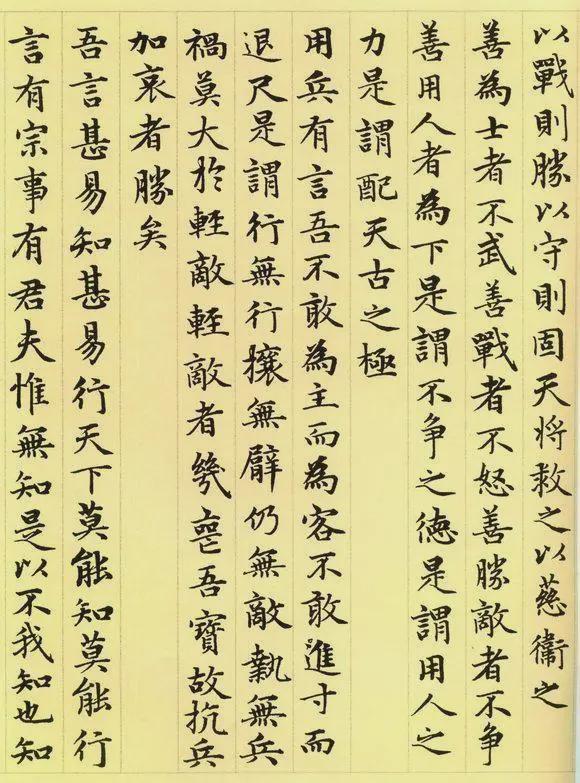 以戰則勝以守則固天將救之以慈衛之
善為士者不武善戰者不怒善勝敵者不爭
善用人者為下是謂不爭之德是謂用人之
力是謂配天古之極
用兵有言吾不敢為主而為客不敢進寸而
退尺是謂行無行攘無臂仍無敵執無兵
禍莫大於輕敵輕敵者幾喪吾寶故抗兵
加哀者勝矣
吾言甚易知甚易行天下莫能知莫能行
言有宗事有君夫惟無知是以不我知也知